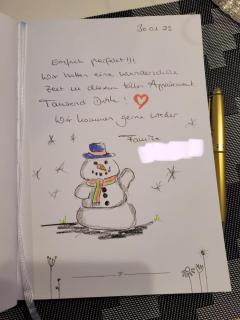 30.01.22
Einfach perfekt!!!
Wir hatten eine wunderschöne
Zeit in diesem tollen Appartement
Tausend Dank!
Wir kommen gerne wieder
Familie